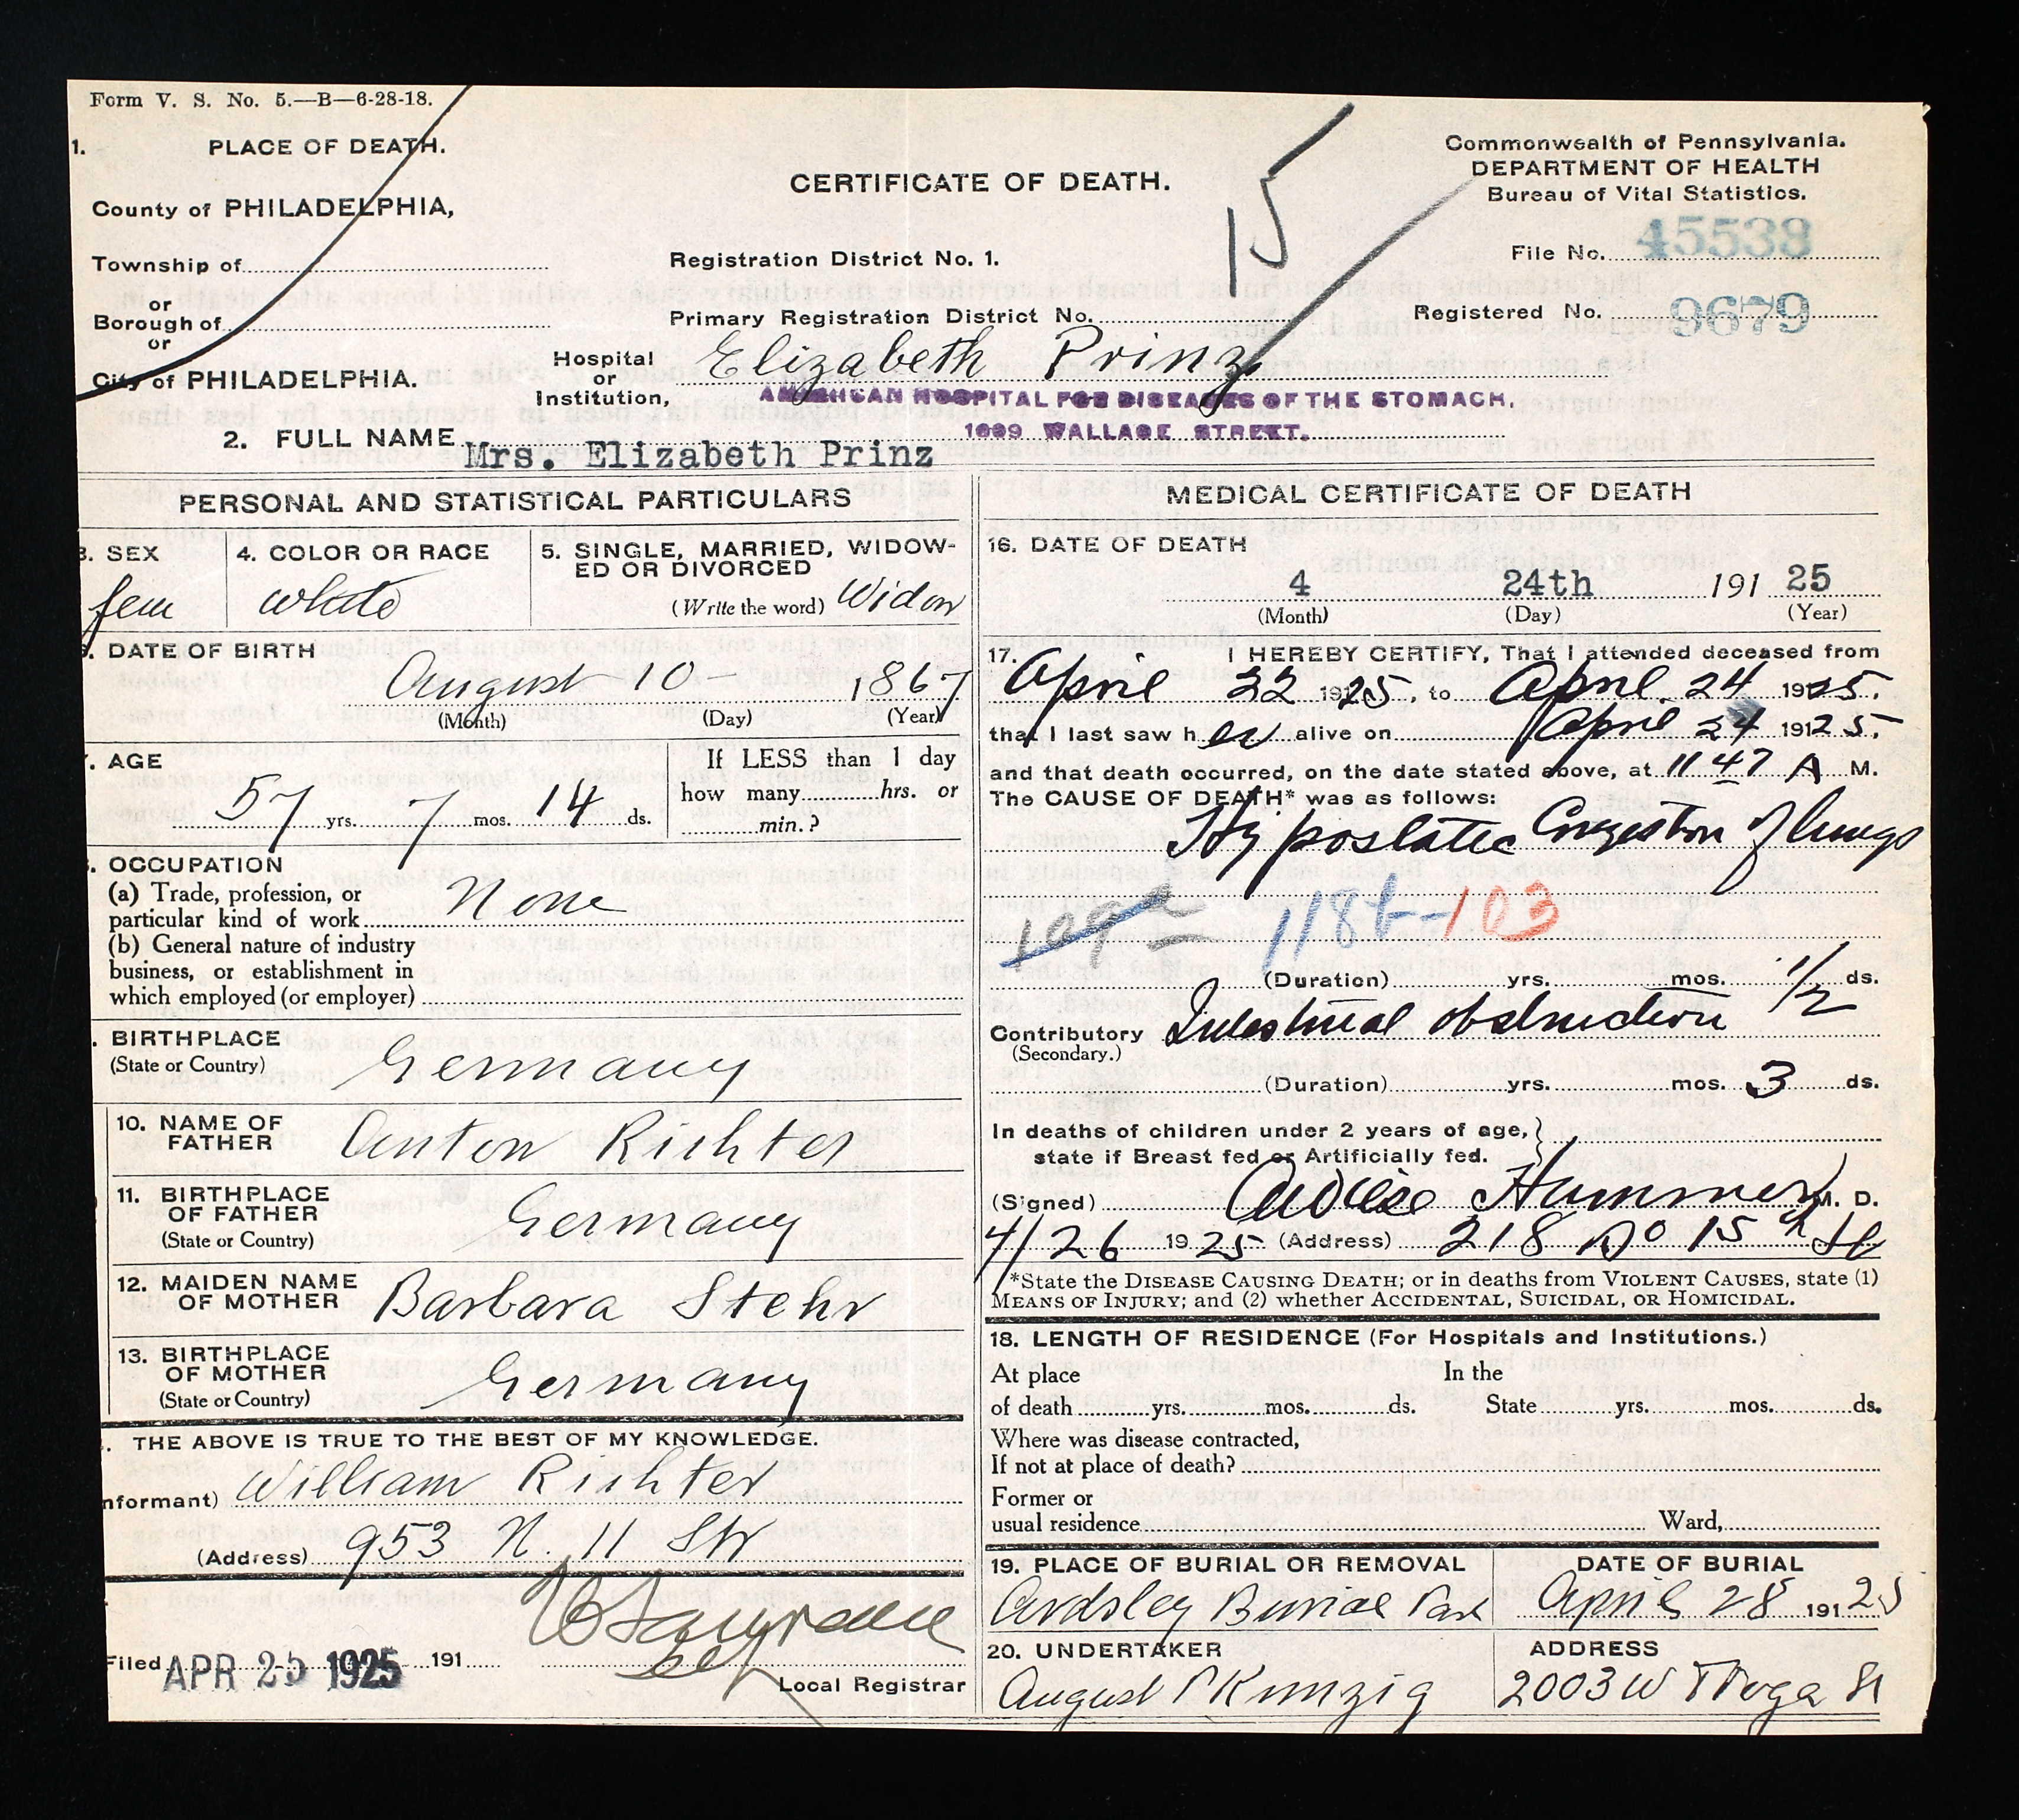 Form V. S. No. 5.—B—6-28-18.
1. PLACE OF DEATH.
County of PHILADELPHIA,
Township of
or
Borough of
or
City of PHILADELPHIA.
CERTIFICATE OF DEATH.
Registration District No. 1.
Primary Registration District No.
15
Commonwealth of Pennsylvania.
DEPARTMENT OF HEALTH
Bureau of Vital Statistics.
File No. 45538
Registered No. 9679
Hospital or Institution, Elizabeth Prinz
AMERICAN HOSPITAL FOR DISEASES OF THE STOMACH.
1809 WALLACE STREET.
2. FULL NAME Mrs. Elizabeth Prinz
PERSONAL AND STATISTICAL PARTICULARS
3. SEX
fem
4. COLOR OR RACE
white
5. SINGLE, MARRIED, WIDOW-
ED OR DIVORCED
(Write the word) Widow
. DATE OF BIRTH
August 10 1867
(Month) (Day) (Year)
. AGE
57 yrs. 7 mos. 14 ds.
If LESS than 1 day
how many hrs. or
min.?
. OCCUPATION
(a) Trade, profession, or
particular kind of work None
(b) General nature of industry
business, or establishment in
which employed (or employer)
. BIRTHPLACE
(State or Country) Germany
10. NAME OF
FATHER Anton Richter
11. BIRTHPLACE
OF FATHER
(State or Country) Germany
12. MAIDEN NAME
OF MOTHER Barbara Stehr
13. BIRTHPLACE
OF MOTHER
(State or Country) Germany
. THE ABOVE IS TRUE TO THE BEST OF MY KNOWLEDGE.
nformant) William Richter
(Address) 953 N. 11 Str
Filed APR 25 1925 191
Local Registrar
MEDICAL CERTIFICATE OF DEATH
16. DATE OF DEATH
4 24th 191 25
(Month) (Day) (Year)
17. I HEREBY CERTIFY, That I attended deceased from
April 22 1925, to April 24 1925.
that I last saw h er alive on April 24 1925,
and that death occurred, on the date stated above, at 11 47 A M.
The CAUSE OF DEATH* was as follows:
Hypostatic Congestion of lungs
109a 118b-103
(Duration) yrs. mos. 1/2 ds.
Contributory Intestinal obstruction
(Secondary.)
(Duration) yrs. mos. 3 ds.
In deaths of children under 2 years of age,
state if Breast fed or Artificially fed.
(Signed) Hummer M. D.
4/26 1925 (Address) 218 No 15th St
*State the DISEASE CAUSING DEATH; or in deaths from VIOLENT CAUSES, state (1)
MEANS OF INJURY; and (2) whether ACCIDENTAL, SUICIDAL, OR HOMICIDAL.
18. LENGTH OF RESIDENCE (For Hospitals and Institutions.)
At place In the
of death yrs. mos. ds. State yrs. mos. ds.
Where was disease contracted,
If not at place of death?
Former or
usual residence Ward,
19. PLACE OF BURIAL OR REMOVAL
Ardsley Burial Park
DATE OF BURIAL
April 28 191 25
20. UNDERTAKER
August P Kunzig
ADDRESS
2003 W Tioga St